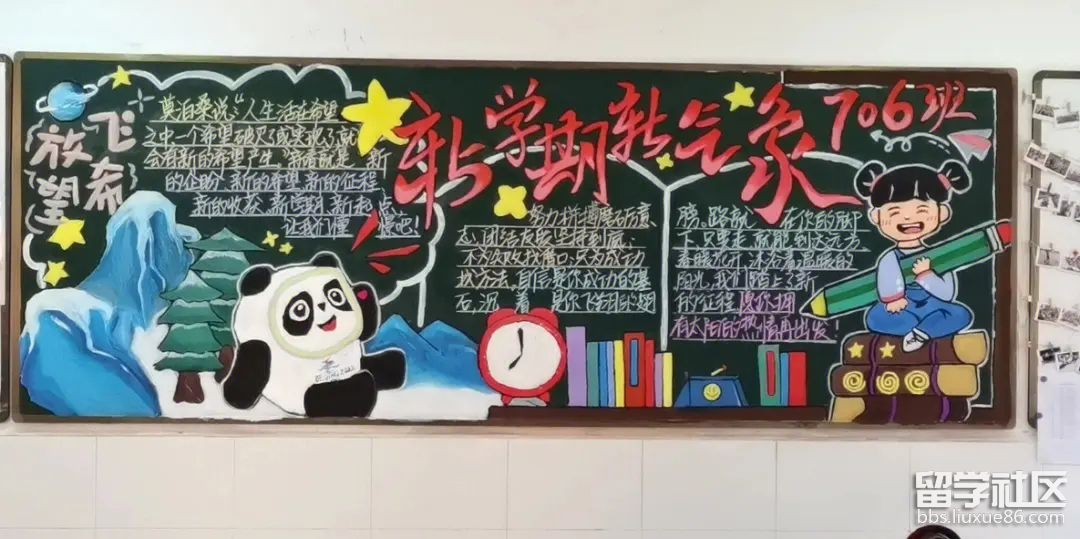 新学期新气象
706班
放飞
希望
莫泊桑说:“人生活在希望
之中一个希望破灭了或实现了就
会有新的希望产生。新春就是新
的企盼、新的希望、新的征程、
新的收获、新学期、新起点
让我们
吧!
努力拼搏磨砺意
志、团结友爱坚持到底、
不为失败找借口、只为成功
找方法、自信是你成功的基
石,沉着是你飞翔的翅
膀。路就在你的脚
下只要走就能到达远方
春暖花开,沐浴着温暖的
阳光,我们踏上了新
的征程愿你拥
有太阳的热情再出发!
留学社区
bbs.liuxue86.com